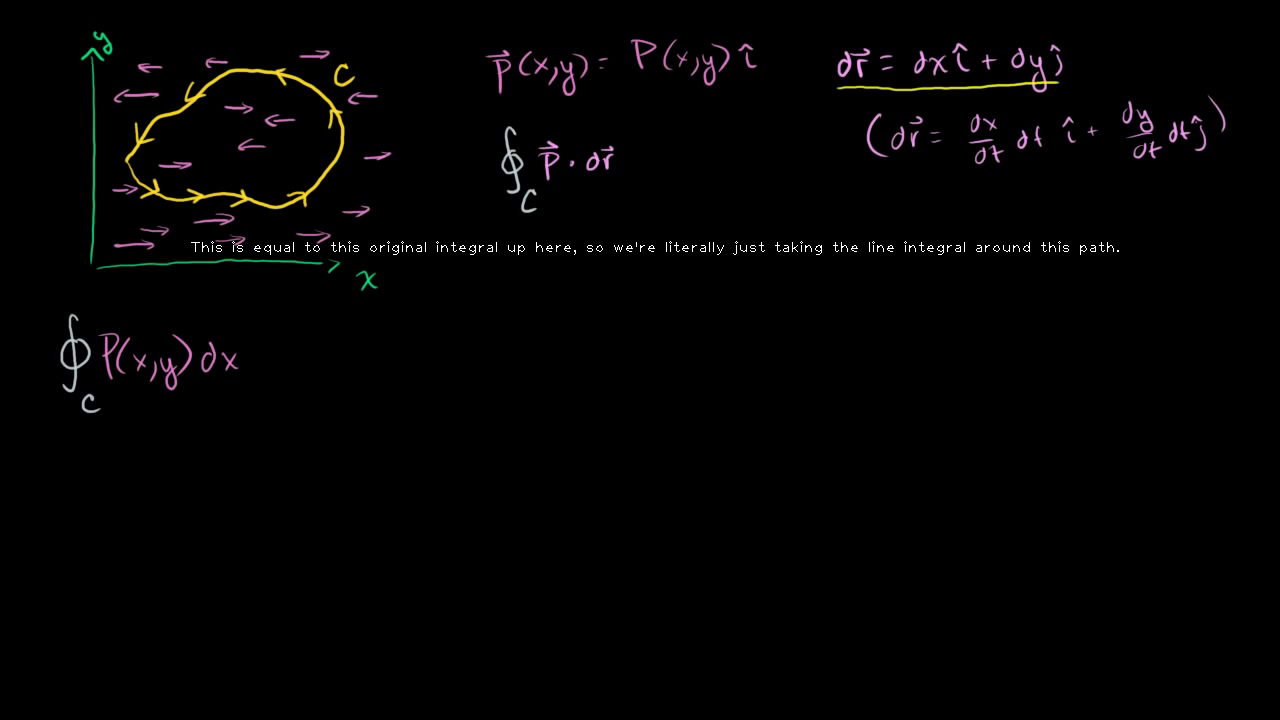 y
C
P⃗(x,y) = P(x,y) î
dr⃗ = dx î + dy ĵ
(dr⃗ = dx/dt dt î + dy/dt dt ĵ)
∮_C P⃗ · dr⃗
This is equal to this original integral up here, so we're literally just taking the line integral around this path.
x
∮_C P(x,y) dx